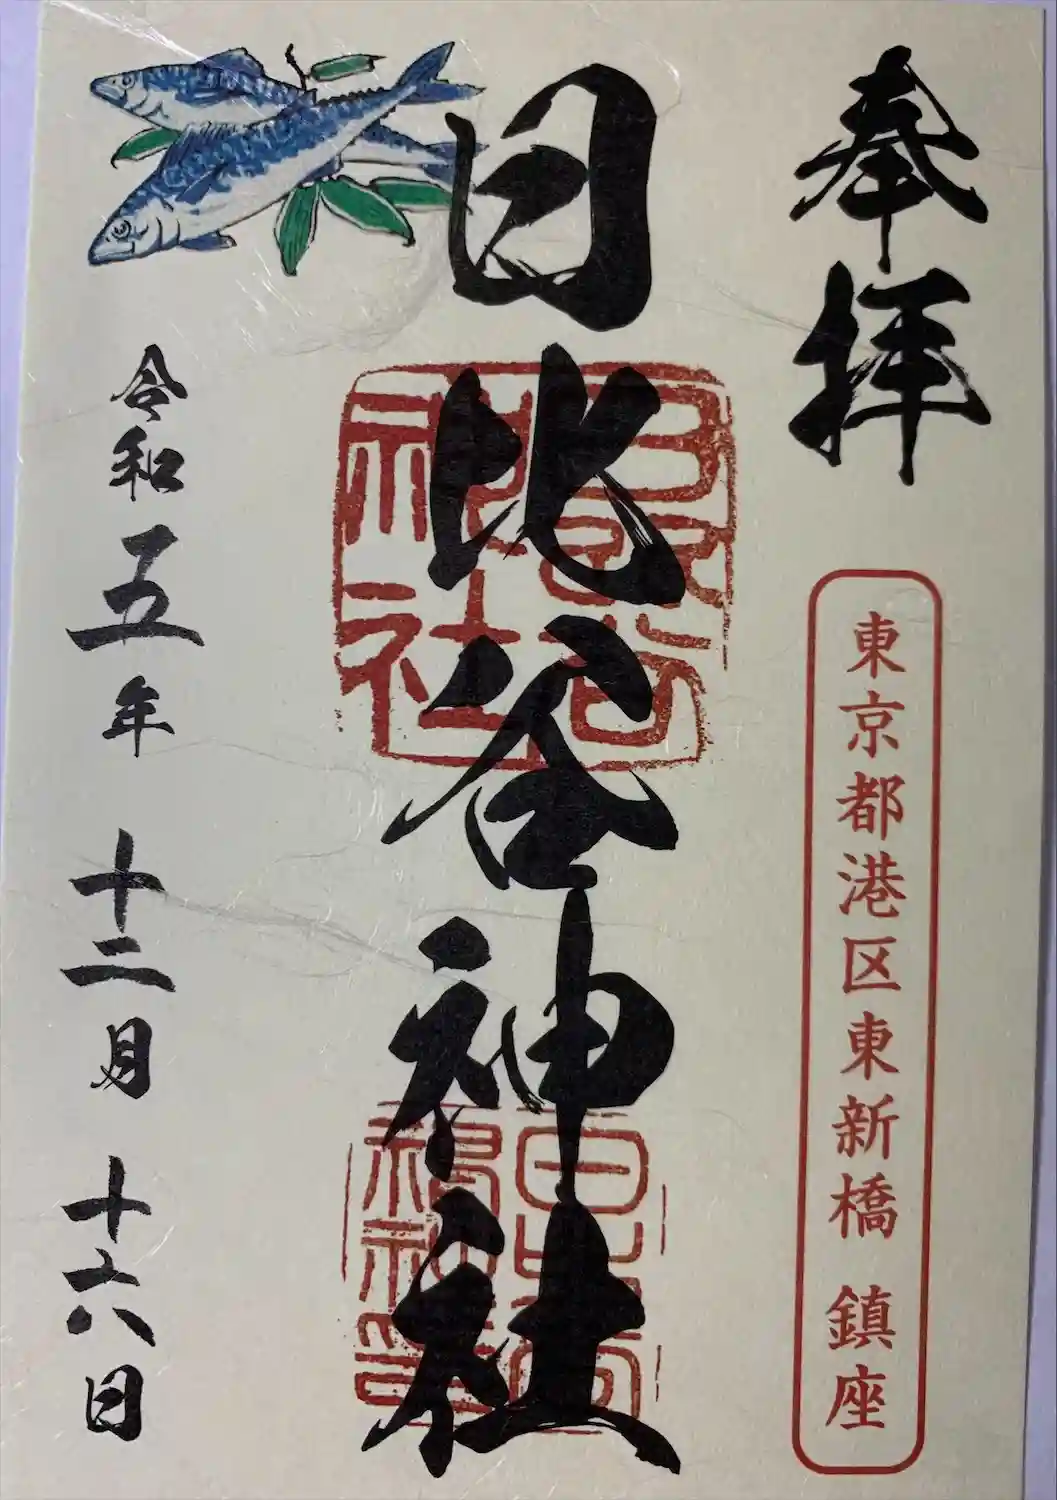 奉拝
東京都港区東新橋 鎮座
日比谷神社
令和五年 十二月 十六日